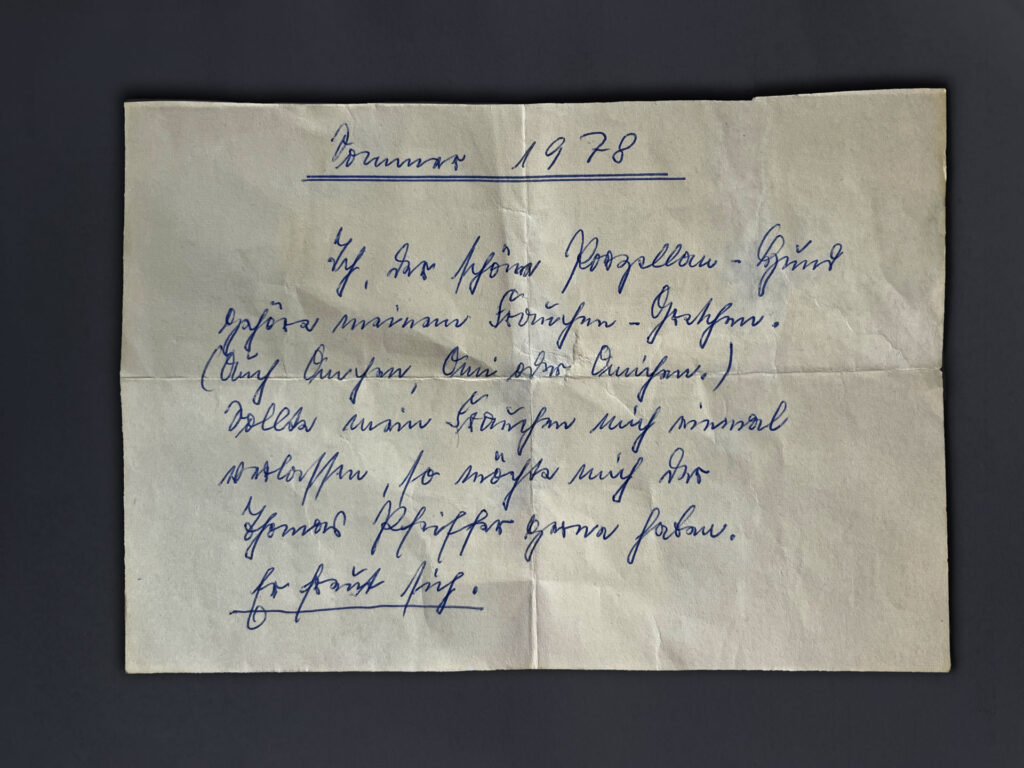 Sommer 1978
Ich, der schöne Porzellan-Hund
gehöre meinem Frauchen-Gretchen.
(Auch Omchen, Omi oder Omichen.)
Sollte mein Frauchen mich einmal
verlassen, so möchte mich der
Thomas Pfeiffer gerne haben.
Er freut sich.